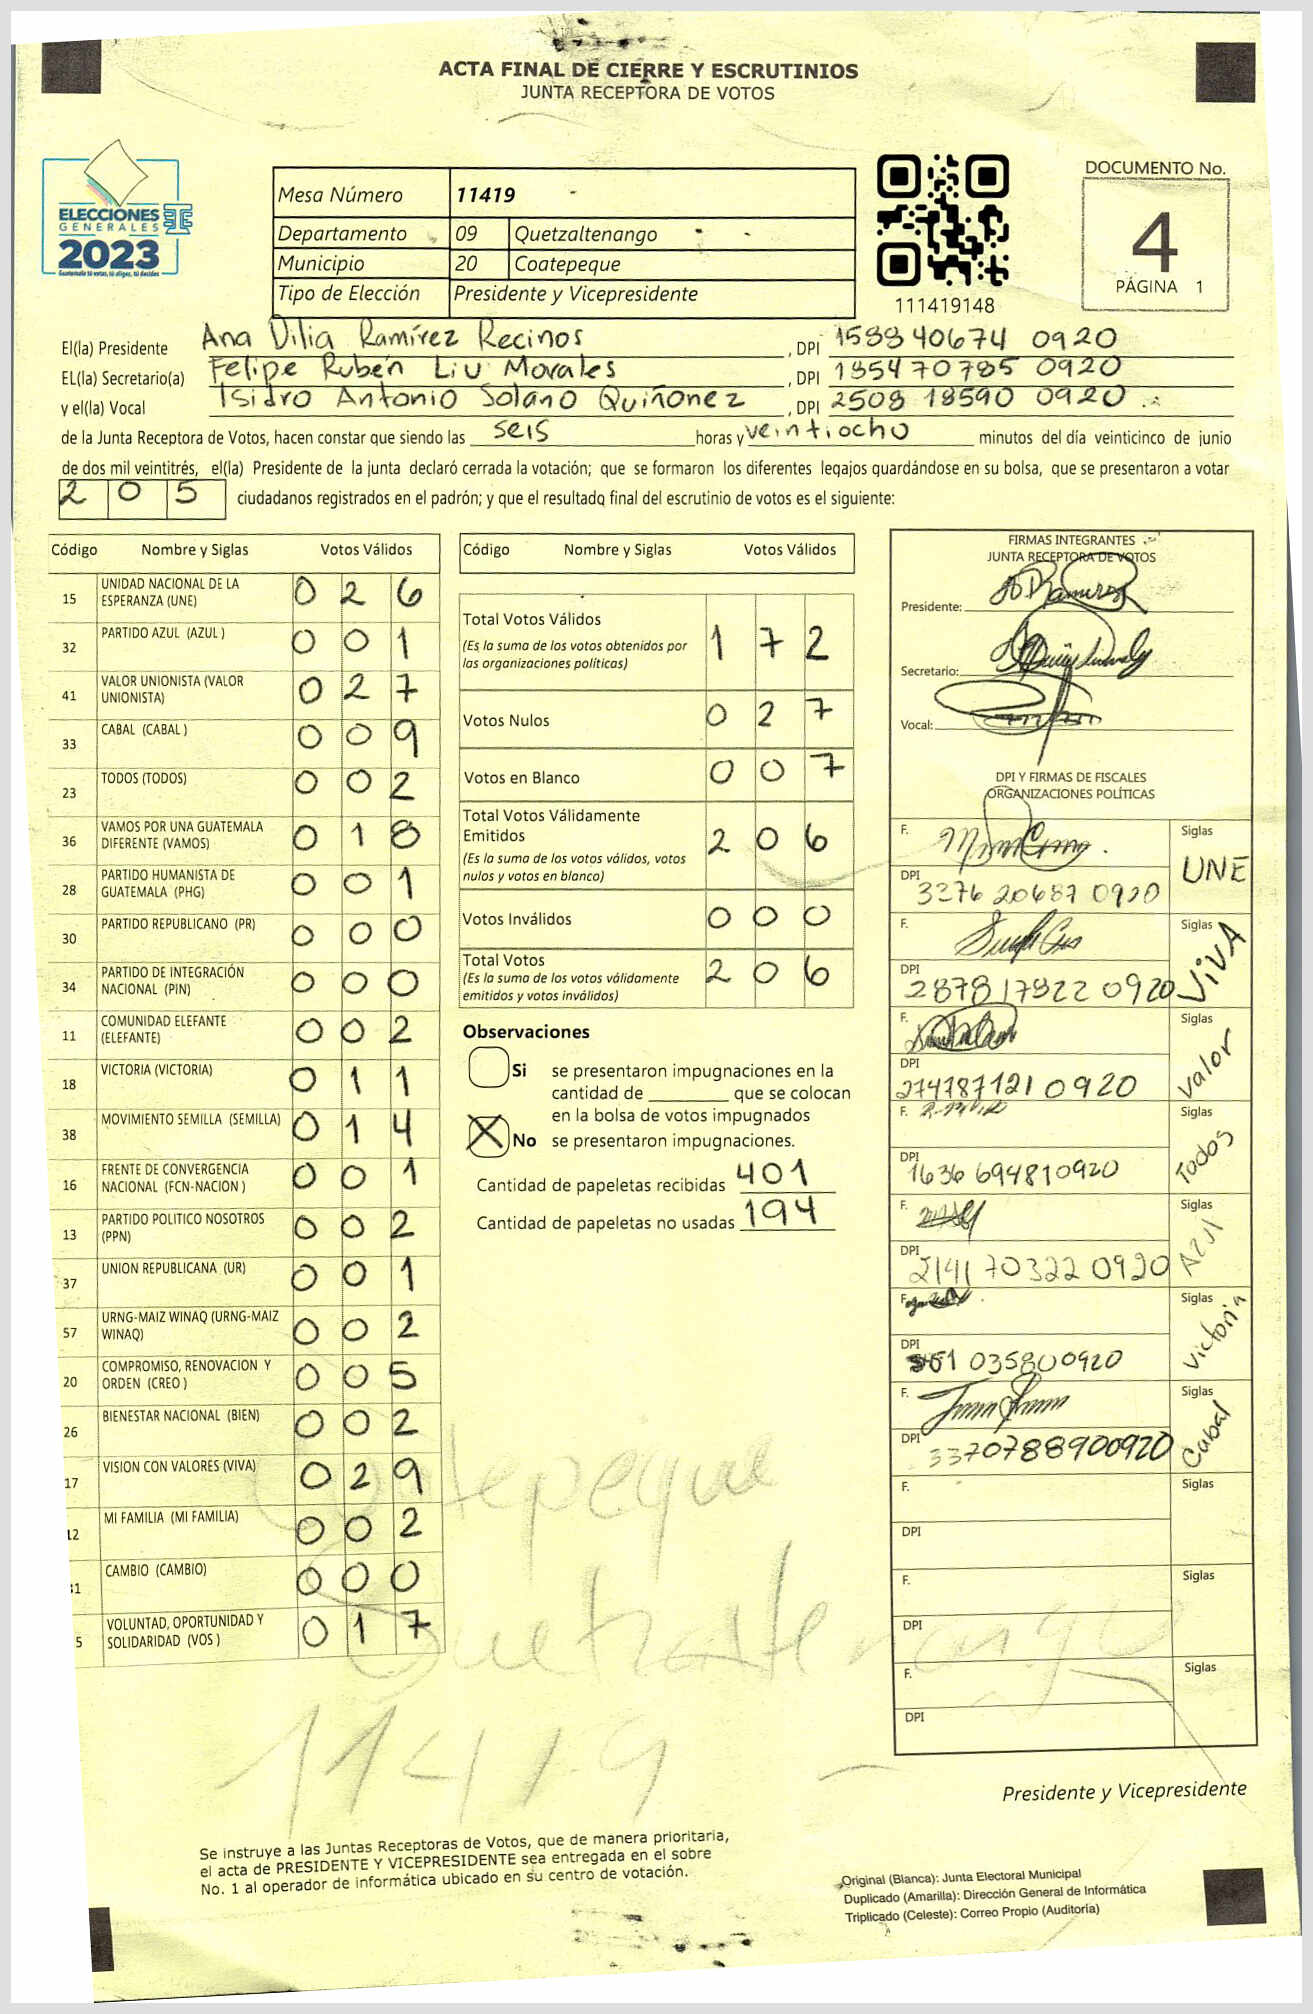 ACTA FINAL DE CIERRE Y ESCRUTINIOS
JUNTA RECEPTORA DE VOTOS
ELECCIONES
GENERALES
2023
Guatemala tú votas, tú eliges, tú decides
Mesa Número 11419
Departamento 09 Quetzaltenango
Municipio 20 Coatepeque
Tipo de Elección Presidente y Vicepresidente
111419148
DOCUMENTO No.
4
PÁGINA 1
El(la) Presidente Ana Dilia Ramírez Recinos, DPI 1588 40674 0920
EL(la) Secretario(a) Felipe Rubén Liu Morales, DPI 1854 70785 0920
y el(la) Vocal Isidro Antonio Solano Quiñonez, DPI 2508 18590 0920
de la Junta Receptora de Votos, hacen constar que siendo las seis horas y veintiocho minutos del día veinticinco de junio
de dos mil veintitrés, el(la) Presidente de la junta declaró cerrada la votación; que se formaron los diferentes legajos guardándose en su bolsa, que se presentaron a votar
205 ciudadanos registrados en el padrón; y que el resultado final del escrutinio de votos es el siguiente:
Código Nombre y Siglas Votos Válidos
15 UNIDAD NACIONAL DE LA ESPERANZA (UNE) 026
32 PARTIDO AZUL (AZUL ) 001
41 VALOR UNIONISTA (VALOR UNIONISTA) 027
33 CABAL (CABAL ) 009
23 TODOS (TODOS) 002
36 VAMOS POR UNA GUATEMALA DIFERENTE (VAMOS) 018
28 PARTIDO HUMANISTA DE GUATEMALA (PHG) 001
30 PARTIDO REPUBLICANO (PR) 000
34 PARTIDO DE INTEGRACIÓN NACIONAL (PIN) 000
11 COMUNIDAD ELEFANTE (ELEFANTE) 002
18 VICTORIA (VICTORIA) 011
38 MOVIMIENTO SEMILLA (SEMILLA) 014
16 FRENTE DE CONVERGENCIA NACIONAL (FCN-NACION ) 001
13 PARTIDO POLITICO NOSOTROS (PPN) 002
37 UNION REPUBLICANA (UR) 001
57 URNG-MAIZ WINAQ (URNG-MAIZ WINAQ) 002
20 COMPROMISO, RENOVACION Y ORDEN (CREO ) 005
26 BIENESTAR NACIONAL (BIEN) 002
17 VISION CON VALORES (VIVA) 029
12 MI FAMILIA (MI FAMILIA) 002
1 CAMBIO (CAMBIO) 000
5 VOLUNTAD, OPORTUNIDAD Y SOLIDARIDAD (VOS ) 017
Código Nombre y Siglas Votos Válidos
Total Votos Válidos 172
(Es la suma de los votos obtenidos por
las organizaciones políticas)
Votos Nulos 027
Votos en Blanco 007
Total Votos Válidamente
Emitidos 206
(Es la suma de los votos válidos, votos
nulos y votos en blanco)
Votos Inválidos 000
Total Votos 206
(Es la suma de los votos válidamente
emitidos y votos inválidos)
Observaciones
Si se presentaron impugnaciones en la
cantidad de ________ que se colocan
en la bolsa de votos impugnados
X No se presentaron impugnaciones.
Cantidad de papeletas recibidas 401
Cantidad de papeletas no usadas 194
FIRMAS INTEGRANTES
JUNTA RECEPTORA DE VOTOS
Presidente:
Secretario:
Vocal:
DPI Y FIRMAS DE FISCALES
ORGANIZACIONES POLÍTICAS
F. Siglas UNE
DPI 3276 20687 0920
F. Siglas VIVA
DPI 2878 17922 0920
F. Siglas Valor
DPI 274787121 0920
F. Siglas Todos
DPI 1636 69481 0920
F. Siglas Azul
DPI 2141 70322 0920
F. Siglas Victoria
DPI 035800920
F. Siglas Cabal
DPI 3370788900920
F. Siglas
DPI
F. Siglas
DPI
F. Siglas
DPI
Coatepeque
Quetzaltenango
11419
Presidente y Vicepresidente
Se instruye a las Juntas Receptoras de Votos, que de manera prioritaria,
el acta de PRESIDENTE Y VICEPRESIDENTE sea entregada en el sobre
No. 1 al operador de informática ubicado en su centro de votación.
Original (Blanca): Junta Electoral Municipal
Duplicado (Amarilla): Dirección General de Informática
Triplicado (Celeste): Correo Propio (Auditoría)